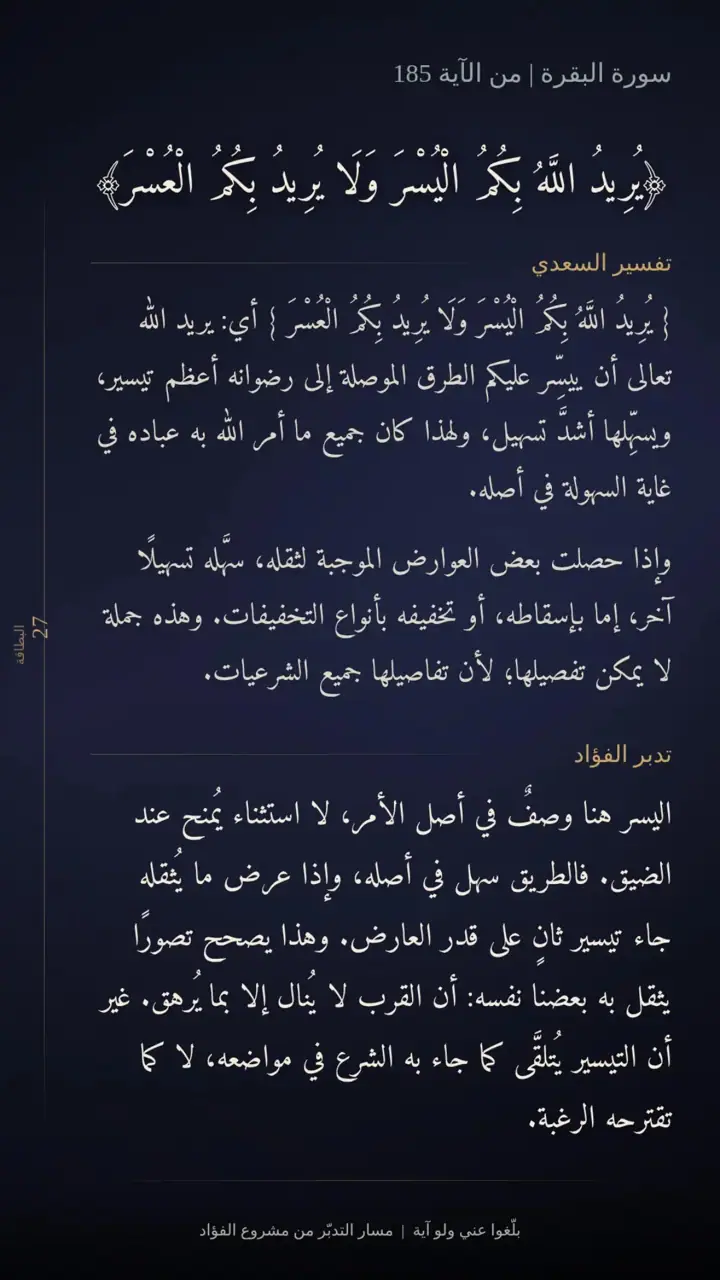 سورة البقرة | من الآية 185
﴿يُرِيدُ اللَّهُ بِكُمُ الْيُسْرَ وَلَا يُرِيدُ بِكُمُ الْعُسْرَ﴾
تفسير السعدي
{ يُرِيدُ اللَّهُ بِكُمُ الْيُسْرَ وَلَا يُرِيدُ بِكُمُ الْعُسْرَ } أي: يريد الله
تعالى أن ييسِّر عليكم الطرق الموصلة إلى رضوانه أعظم تيسير،
ويسهِّلها أشدَّ تسهيل، ولهذا كان جميع ما أمر الله به عباده في
غاية السهولة في أصله.
وإذا حصلت بعض العوارض الموجبة لثقله، سهَّله تسهيلًا
آخر، إما بإسقاطه، أو تخفيفه بأنواع التخفيفات. وهذه جملة
لا يمكن تفصيلها؛ لأن تفاصيلها جميع الشرعيات.
تدبر الفؤاد
اليسر هنا وصفٌ في أصل الأمر، لا استثناء يُمنح عند
الضيق. فالطريق سهل في أصله، وإذا عرض ما يُثقله
جاء تيسير ثانٍ على قدر العارض. وهذا يصحح تصورًا
يثقل به بعضنا نفسه: أن القرب لا يُنال إلا بما يُرهق. غير
أن التيسير يُتلقَّى كما جاء به الشرع في مواضعه، لا كما
تقترحه الرغبة.
البطاقة
27
بلّغوا عني ولو آية | مسار التدبّر من مشروع الفؤاد